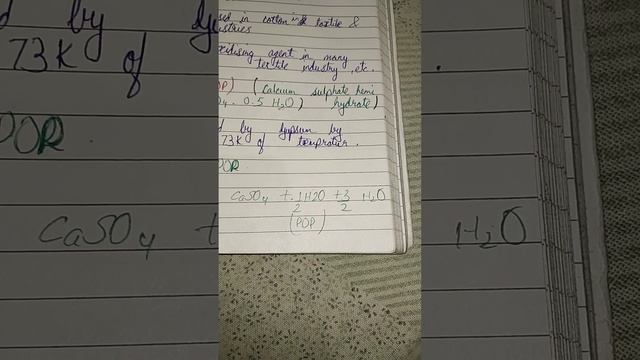 sed in cotton in textile &
ustries
xidising agent in many
textile industry, etc.
OP) (Calcium sulphate hemi
O4. 0.5 H2O) hydrate)
d by gypsum by
73K of tempratur.
POR
CaSO4 + 1/2 H2O + 3/2 H2O
(POP)